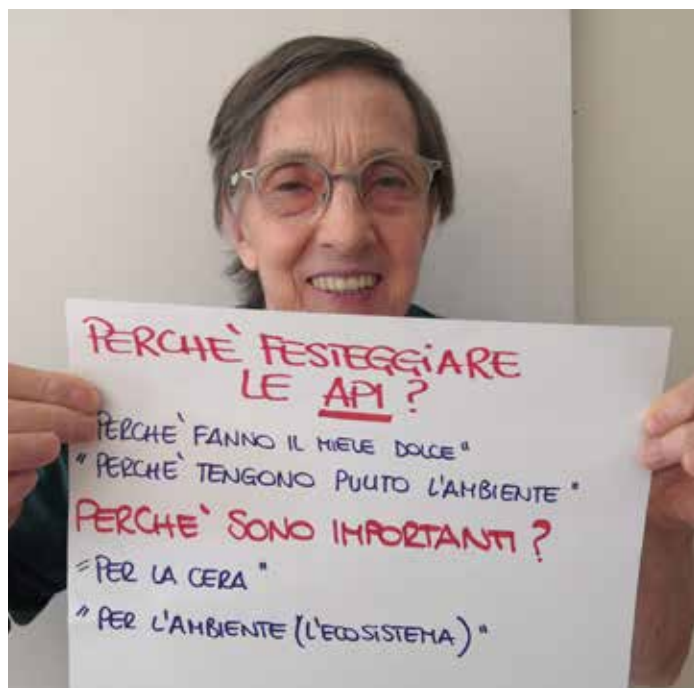 PERCHÈ FESTEGGIARE
LE API ?
PERCHE' FANNO IL MIELE DOLCE"
"PERCHÈ TENGONO PULITO L'AMBIENTE"
PERCHÈ SONO IMPORTANTI ?
"PER LA CERA"
"PER L'AMBIENTE (L'ECOSISTEMA)"